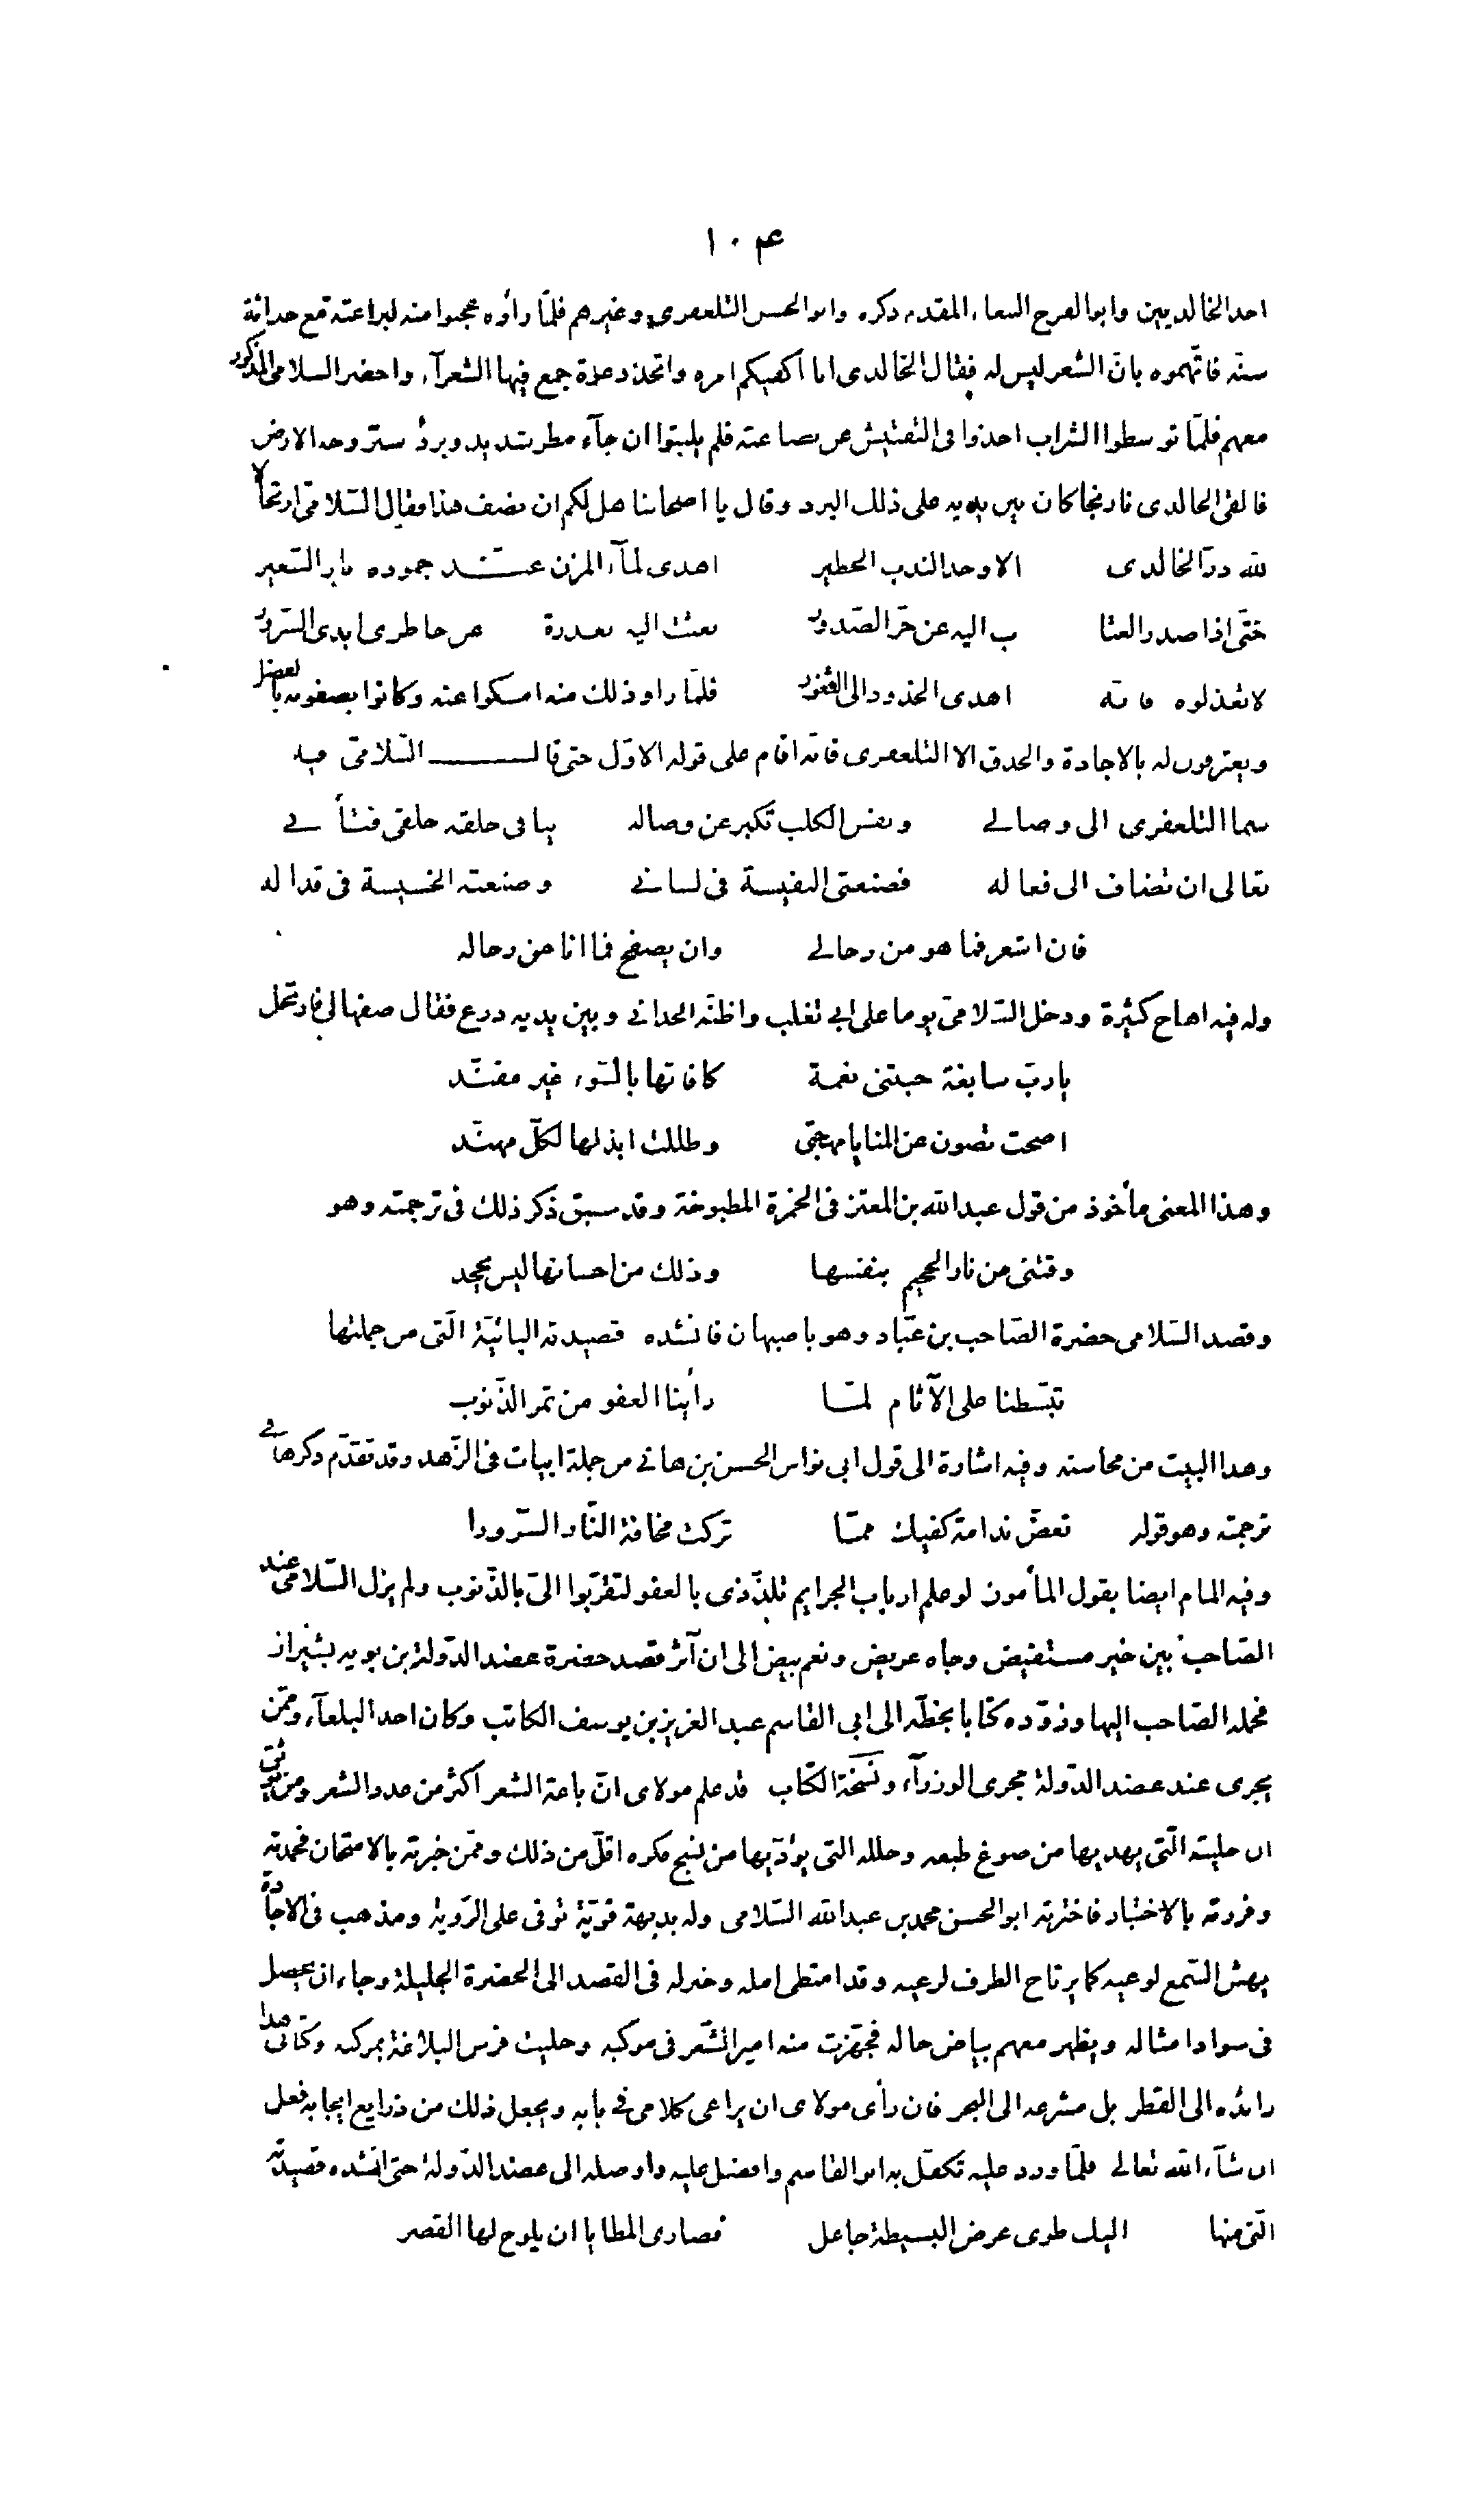 ۱۰۴
احد الخالديين وابو الفرج الببغاء المقدم ذكره وابو الحسن التلعفري وغيرهم فلمّا رأوه عجبوا منه لبراعته مع حداثة
سنّه فاتّهموه بانّ الشعر ليس له فقال الخالدى انا اكفيكم امره واتّخذ دعوة جمع فيها الشعرآء واحضر السلامى المذكور
معهم فلمّا توسطوا الشراب اخذوا فى التفتيش عن بضاعته فلم يلبثوا ان جآء مطر شديد وبردٌ ستر وجه الارض
فالقى الخالدى نارنجا كان بين يديه على ذلك البرد وقال يا اصحابنا هل لكم ان نصف هذا فقال السّلامىّ ارتجالا
لله درّ الخالدى الاوحد الندب الخطير اهدى لمآء المزن عنــد جموده نار السّعير
حتّى اذا صدر العتا ب اليه عن حرّ الصّدور بعثت اليه بعذره عن خاطرى ايدى السّرور
لا تعذلوه فانّه اهدى الخدود الى الثغور فلمّا راو ذلك منه امسكوا عنه وكانوا يصفونه بالفضل
ويعترفون له بالاجادة والحذق الا التلعفرى فانّه اقام على قوله الاوّل حتى قالــــ السّلامىّ فيه
سما التلعفرى الى وصالى ونفس الكلب تكبر عن وصاله ينافى خلقه خلقى فتأبى
تعالى ان تضاف الى فعاله فصنعتى النفيسة فى لسانى وصنعته الخسيسة فى قذاله
فان اشعر فما هو من رجالى وان يصفح فما انا من رجاله
وله فيه اهاج كثيرة ودخل السّلامىّ يوما على ابى تغلب واظنّه الحمدانى وبين يديه درع فقال صفها لى فارتجل
يا ربّ سابغة حبتنى نعمة كافاتها بالسّوء غير مفنّد
اضحت تصون عن المنايا مهجتى وظللت ابذلها لكلّ مهنّد
وهذا المعنى مأخوذ من قول عبد الله بن المعتز فى الخمرة المطبوخة وقد سبق ذكر ذلك فى ترجمته وهو
وقتنى من نار الجحيم بنفسها وذلك من احسانها ليس يجحد
وقصد السّلامى حضرة الصّاحب بن عبّاد وهو باصبهان فانشده قصيدته البائيّة الّتى من جملتها
تبسّطنا على الآثام لمّا رأينا العفو من ثمر الذّنوب
وهذا البيت من محاسنه وفيه اشارة الى قول ابى نواس الحسن بن هانى من جملة ابيات فى الزّهد وقد تقدّم ذكرها فى
ترجمته وهو قوله تعضّ ندامة كفيك ممّا تركت مخافة النّار السّرورا
وفيه المام ايضا بقول المأمون لو علم ارباب الجرايم تلذّذى بالعفو لتقرّبوا الىّ بالذّنوب ولم يزل السّلامى عند
الصّاحب بين خير مستفيض وجاه عريض ونعم بيض الى ان آثر قصد حضرة عضد الدّولة بن بويه بشيراز
فحمله الصّاحب اليها وزوّده كتابا بخطّه الى ابى القاسم عبد العزيز بن يوسف الكاتب وكان احد البلغآء وممّن
يجرى عند عضد الدّولة مجرى الوزرآء ونسخة الكتاب قد علم مولاى انّ باعة الشعر اكثر من عدد الشعر ومن يوثق
ان حليته الّتى يهديها من صوغ طبعه وحلله التى يؤدّيها من نسج فكره اقلّ من ذلك وممّن خبرته بالامتحان فحمدته
وفررته بالاختبار فاخترته ابو الحسن محمد بن عبد الله السّلامى وله بديهة قويّة توفى على الرّوية ومذهب فى الاجادة
يهش السّمع لوعيه كما يرتاح الطرف لرعيه وقد امتطى امله وخير له فى القصد الى الحضرة الجليلة رجاء ان يحصل
فى سواد امثاله ويظهر معهم بياض حاله فجهّزت منه امير الشّعر فى موكبه وحليت فرس البلاغة بمركبه وكتابى هذا
رائده الى القطر بل مشرعه الى البحر فان رأى مولاى ان يراعى كلامى فى بابه ويجعل ذلك من ذرايع ايجابه فعل
ان شآء الله تعالى فلمّا ورد عليه تكفّل به ابو القاسم وافضل عليه واوصله الى عضد الدّولة حتى انشده قصيدته
الّتى منها اليك طوى عرض البسيطة جاعل قصارى المطايا ان يلوح لها القصر